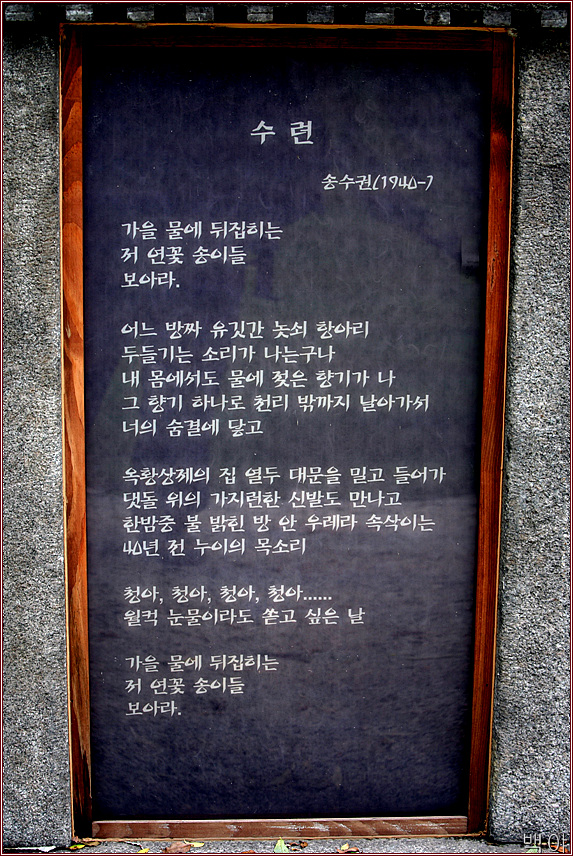 수 련
송수권(1940-)
가을 물에 뒤집히는
저 연꽃 송이들
보아라.
어느 방짜 유깃간 놋쇠 항아리
두들기는 소리가 나는구나
내 몸에서도 물에 젖은 향기가 나
그 향기 하나로 천리 밖까지 날아가서
너의 숨결에 닿고
옥황상제의 집 열두 대문을 밀고 들어가
댓돌 위의 가지런한 신발도 만나고
한밤중 불 밝힌 방 안 우레라 속삭이는
40년 전 누이의 목소리
청아, 청아, 청아, 청아......
월컥 눈물이라도 쏟고 싶은 날
가을 물에 뒤집히는
저 연꽃 송이들
보아라.
백아